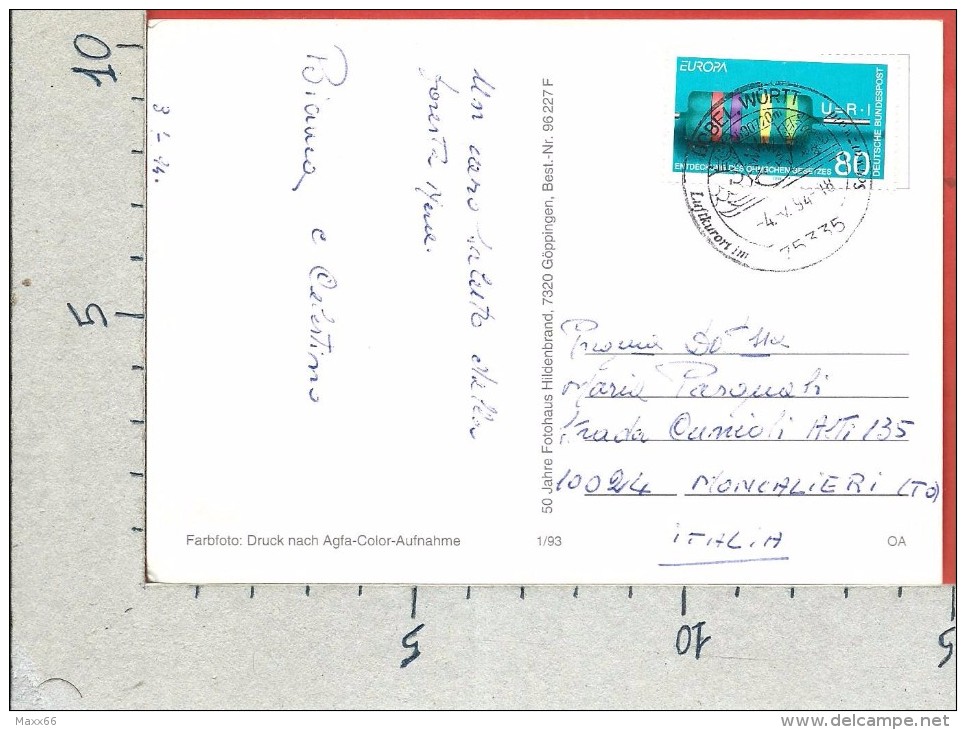 3-5-94.
Un caro saluto dalla
foresta Nera.
Bianca e Celestino
50 Jahre Fotohaus Hildenbrand, 7320 Göppingen, Best.-Nr. 96 227 F
EUROPA
U=R·I
DEUTSCHE BUNDESPOST
ENTDECKUNG DES OHMSCHEN GESETZES
80
DOBEL, WÜRTT
Luftkurort im
-4.-V.94-18
75335
Maria Pasquali
Strada Cunioli Alti 135
10024 MONCALIERI (TO)
ITALIA
Farbfoto: Druck nach Agfa-Color-Aufnahme
1/93
OA
10
5
5
10
5
Maxx66
www.delcampe.net